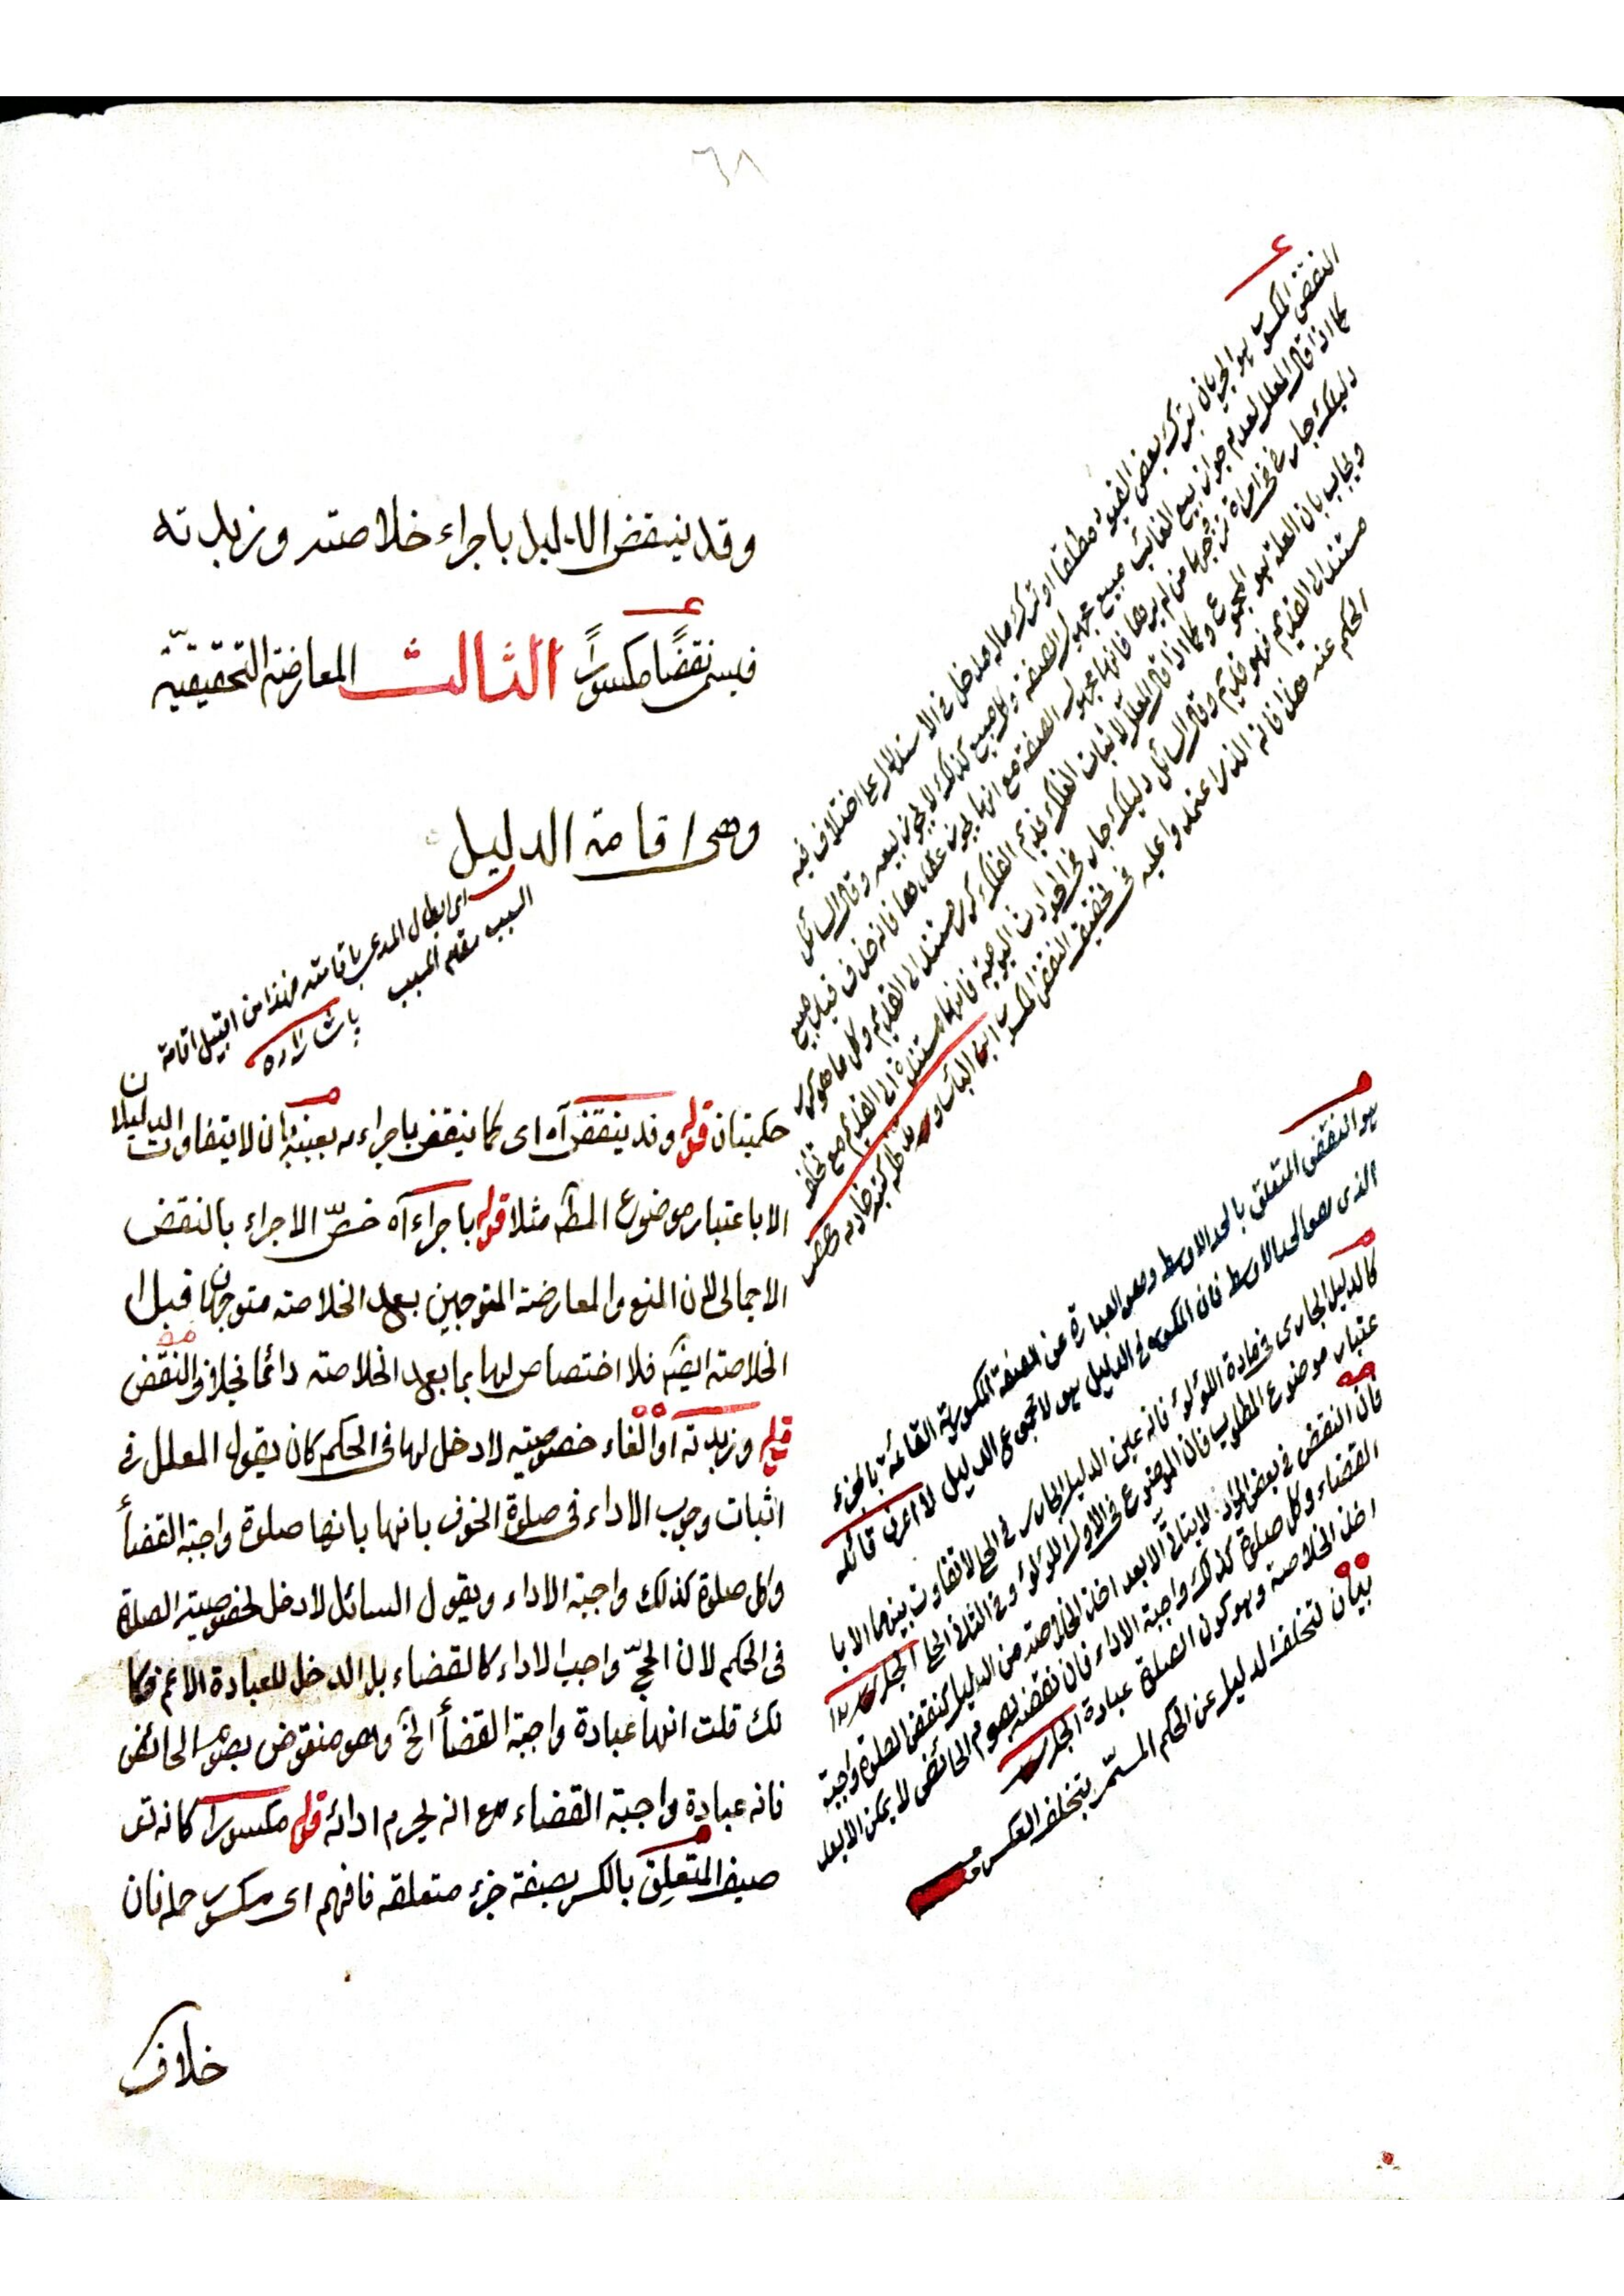 ٦٨
وقد ينقض الدليل باجراء خلاصته وزبدته
فيسمى نقضًا مكسورًا الثالث المعارضة التحقيقيّة
وهى اقامة الدليل
اى ابطال المدعى باقامته فهذا من قبيل اقامة
السبب مقام المسبب
پاشا زاده
حكميتان قوله وقد ينقض آه اى كما ينقض باجراءه بعينه بان لا يتفاوت الدليلان
الا باعتبار موضوع المط مثلا قوله باجراء آه خصّ الاجراء بالنقض
الاجمالى لان المنع والمعارضة المتوجهين بعد الخلاصة متوجهان قبل
الخلاصة ايضا فلا اختصاص لهما بما بعد الخلاصة دائما بخلاف النقض
قوله وزبدته آ والغاء خصوصية لا دخل لها فى الحكم كان يقول المعلل فى
اثبات وجوب الاداء فى صلوة الخوف بانها بانها صلوة واجبة القضأ
وكل صلوة كذلك واجبة الاداء ويقول السائل لا دخل لخصوصية الصلوة
فى الحكم لان الحجّ واجب الاداء كالقضاء بل الدخل للعبادة الاعم فكا
نك قلت انها عبادة واجبة القضأ الخ وهو منقوض بصوم الحائض
فانه عبادة واجبة القضاء مع انه يحرم ادائه قوله مكسورا كانه تو
صيف المتعلِق بالكسر بصفة جزء متعلقه فافهم اى مكسور حمله فان
خلاف
النقض المكسور هو الجريان بترك بعض القيود مطلقا او ترك ماله مدخل فى الاستدلال على اختلاف فيه
كما اذا قال المعلل لعدم جواز بيع الغائب مبيع مجهول الصفة وكل مبيع كذلك لا يجوز بيعه وقال السائل
دليلك جار فى امراة تزوجها من لم يرها فانها مجهول الصفة مع انها يجوز عقدها فانه حذف قيد مبيع
ويجاب بان العلة هو المجموع وكما اذا قال المعلل لاثبات الفلك قديم الفلك كرى مستند الى القديم وكل ما هو كرى
مستند الى القديم فهو قديم وقال السائل دليلك جار فى الحوادث اليومية فانها مستندة الى القديم مع تخلف
الحكم عنه هذا فانه الذى اعتمدوا عليه فى تحقيق النقض المكسور
هو النقض المتعلق بالحد الاوسط وهو العبارة عن الصفة المكسورة القائمة بالجزء
الذى هو الحد الاوسط فان المكسور فى الدليل هو لا مجموع الدليل لا اعرف قائله
كالدليل الجارى فى مادة اللؤلؤ فانه عين الدليل الجارى فى الحلى لا تفاوت بينهما الا با
عتبار موضوع المطلوب فان الموضوع فى الاول اللؤلؤ وفى الثانى الحلى
فان النقض فى بعض المواد لا يتاتى الا بعد اخذ الخلاصة من الدليل كنقض الصلوة واجبة
القضاء وكل صلوة كذلك واجبة الاداء فان نقضه بصوم الحائض لا يمكن الا بعد
اخذ الخلاصة وهو كون الصلوة عبادة
بيان لتخلف الدليل عن الحكم المستمر بتخلف العكس